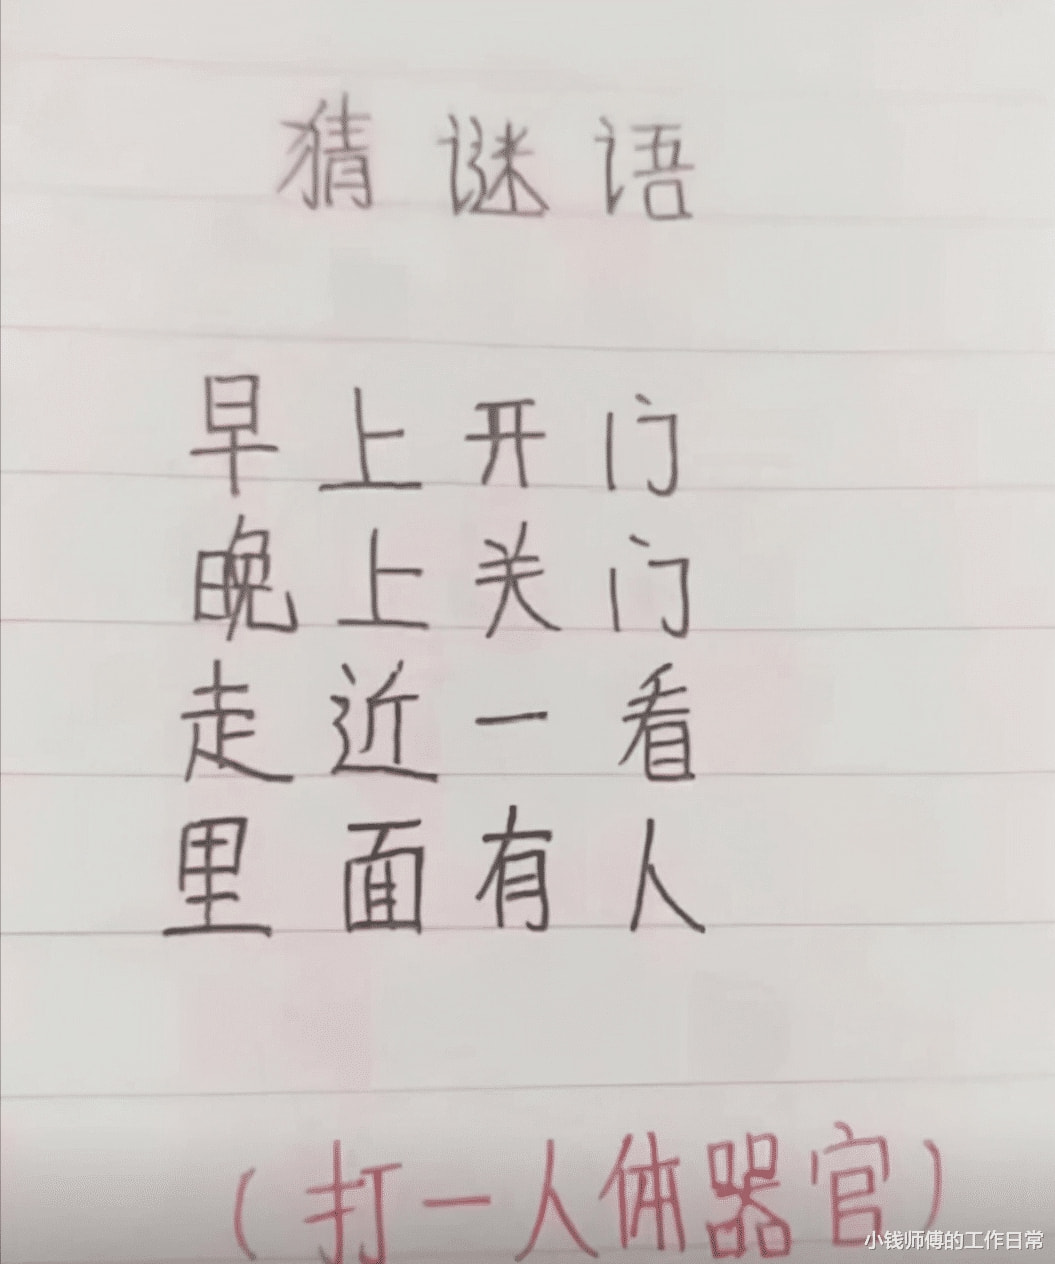 猜谜语
早上开门
晚上关门
走近一看
里面有人
(打一人体器官)
小钱师傅的工作日常